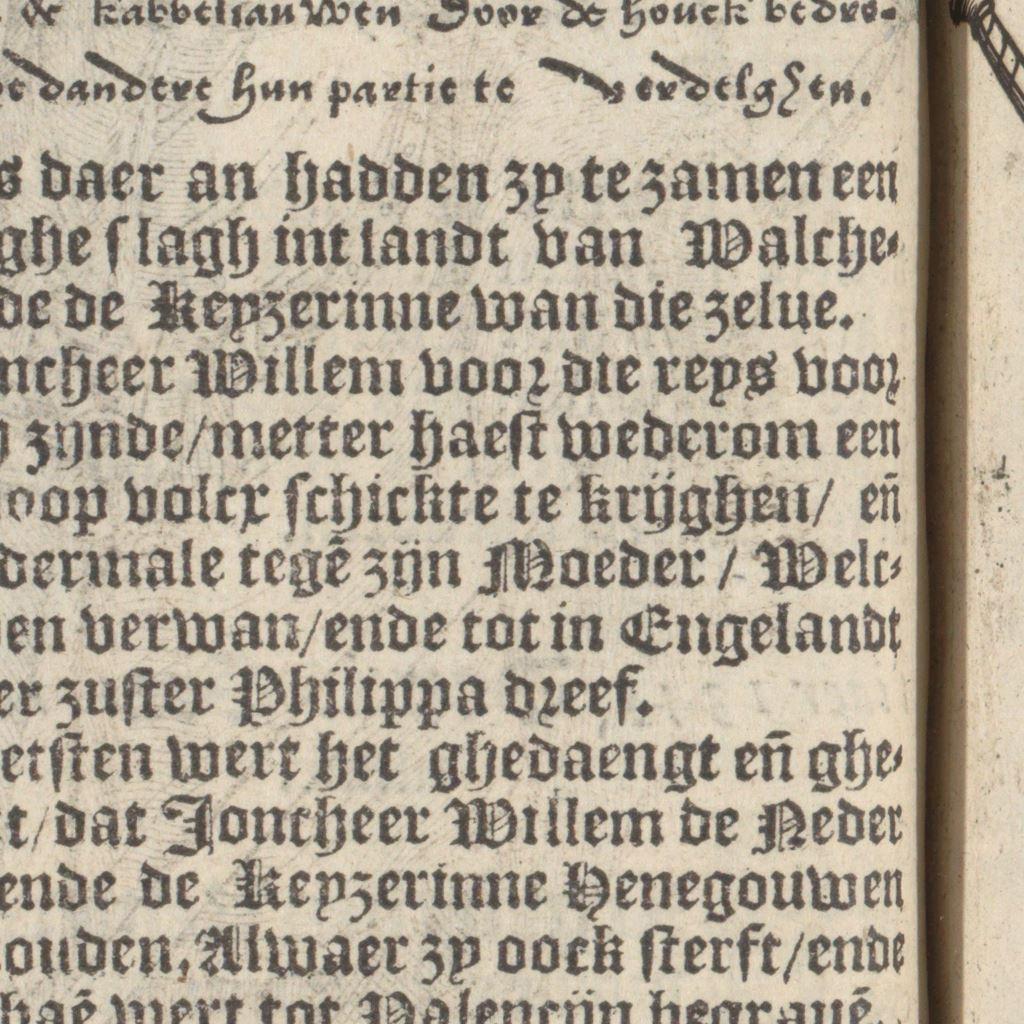 & kabbeliauwen Door de houck bedro-
dandere hun partie te verdelghen.
s daer an hadden zy te zamen een
ghe slagh int landt van Walche-
de de Keyzerinne wan die zelue.
ncheer Willem voor die reys voor
zijnde/metter haest wederom een
oop volcx schickte te krijghen/ eñ
dermale tegē zijn Moeder / Welc-
en verwan/ende tot in Engelandt
er zuster Philippa dreef.
etsten wert het ghedaengt eñ ghe-
t/dat Joncheer Willem de Neder
ende de Keyzerinne Henegouwen
ouden, Alwaer zy oock sterft/ende
haē wert tot Valencijn begrauē.